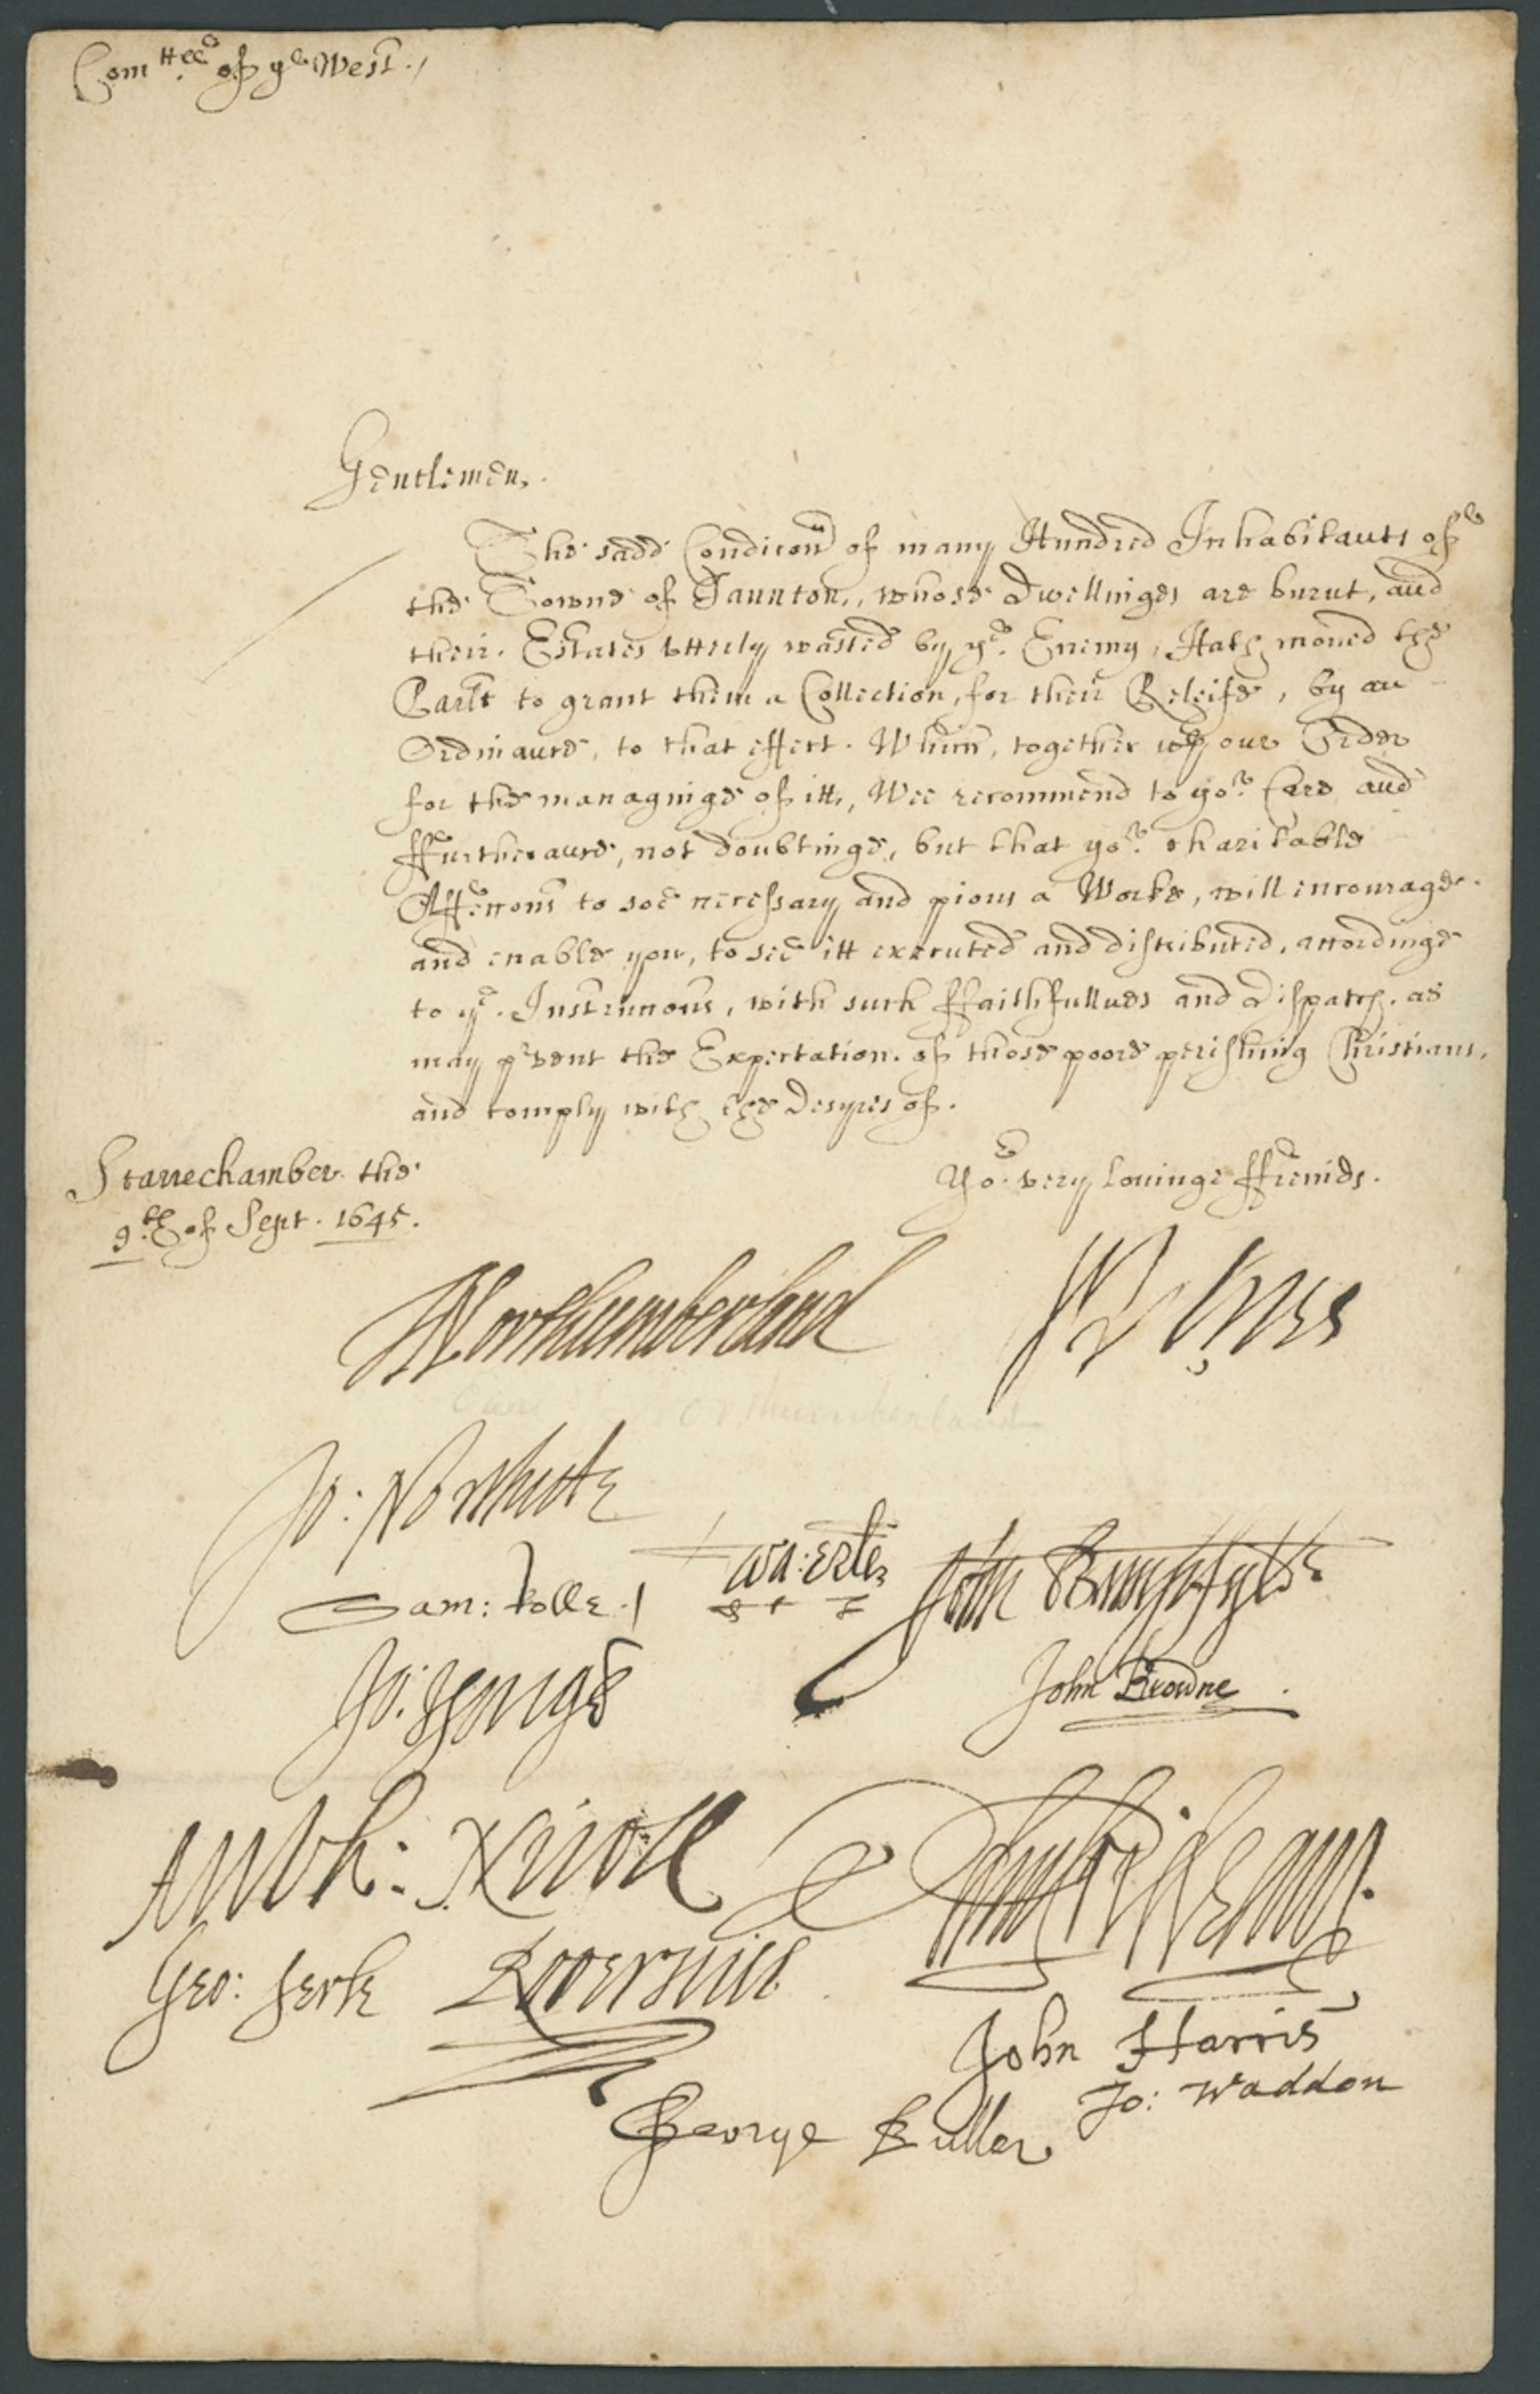 Com.ttee of ye West./
Gentlemen,.
The sadd Condicon of many Hundred Inhabitants of
the Towne of Taunton, whose Dwellinges are burnt, and
their Estates vtterly wasted by ye. Enemy, Hath moued the
Parlt to grant them a Collection, for their Releife, by an
Ordinance, to that effect. Which, together wth our Order
for the managinge of itt, Wee recommend to yor. Care and
ffurtherance, not doubtinge, but that yor. charitable
Affeccons to soe necessary and pious a Worke, will encourage
and enable you, to see itt executed and distributed, accordinge
to ye. Instruccons, with such ffaithfullnes and Dispatch. as
may pruent the Expectation. of those poore perishing Christians,
and comply with the Desyres of.
Starrechamber the
9.th of Sept. 1645.
Yor. very louinge ffreinds.
Northumberland
Jo: Northcote
Wa: Erle
John Bampfylde
Sam: Rolle
Jo: Yonge
John Browne
Anth: Nicoll
Geo: Serle
Roger Hill
John Harris
Jo: Waddon
George Buller